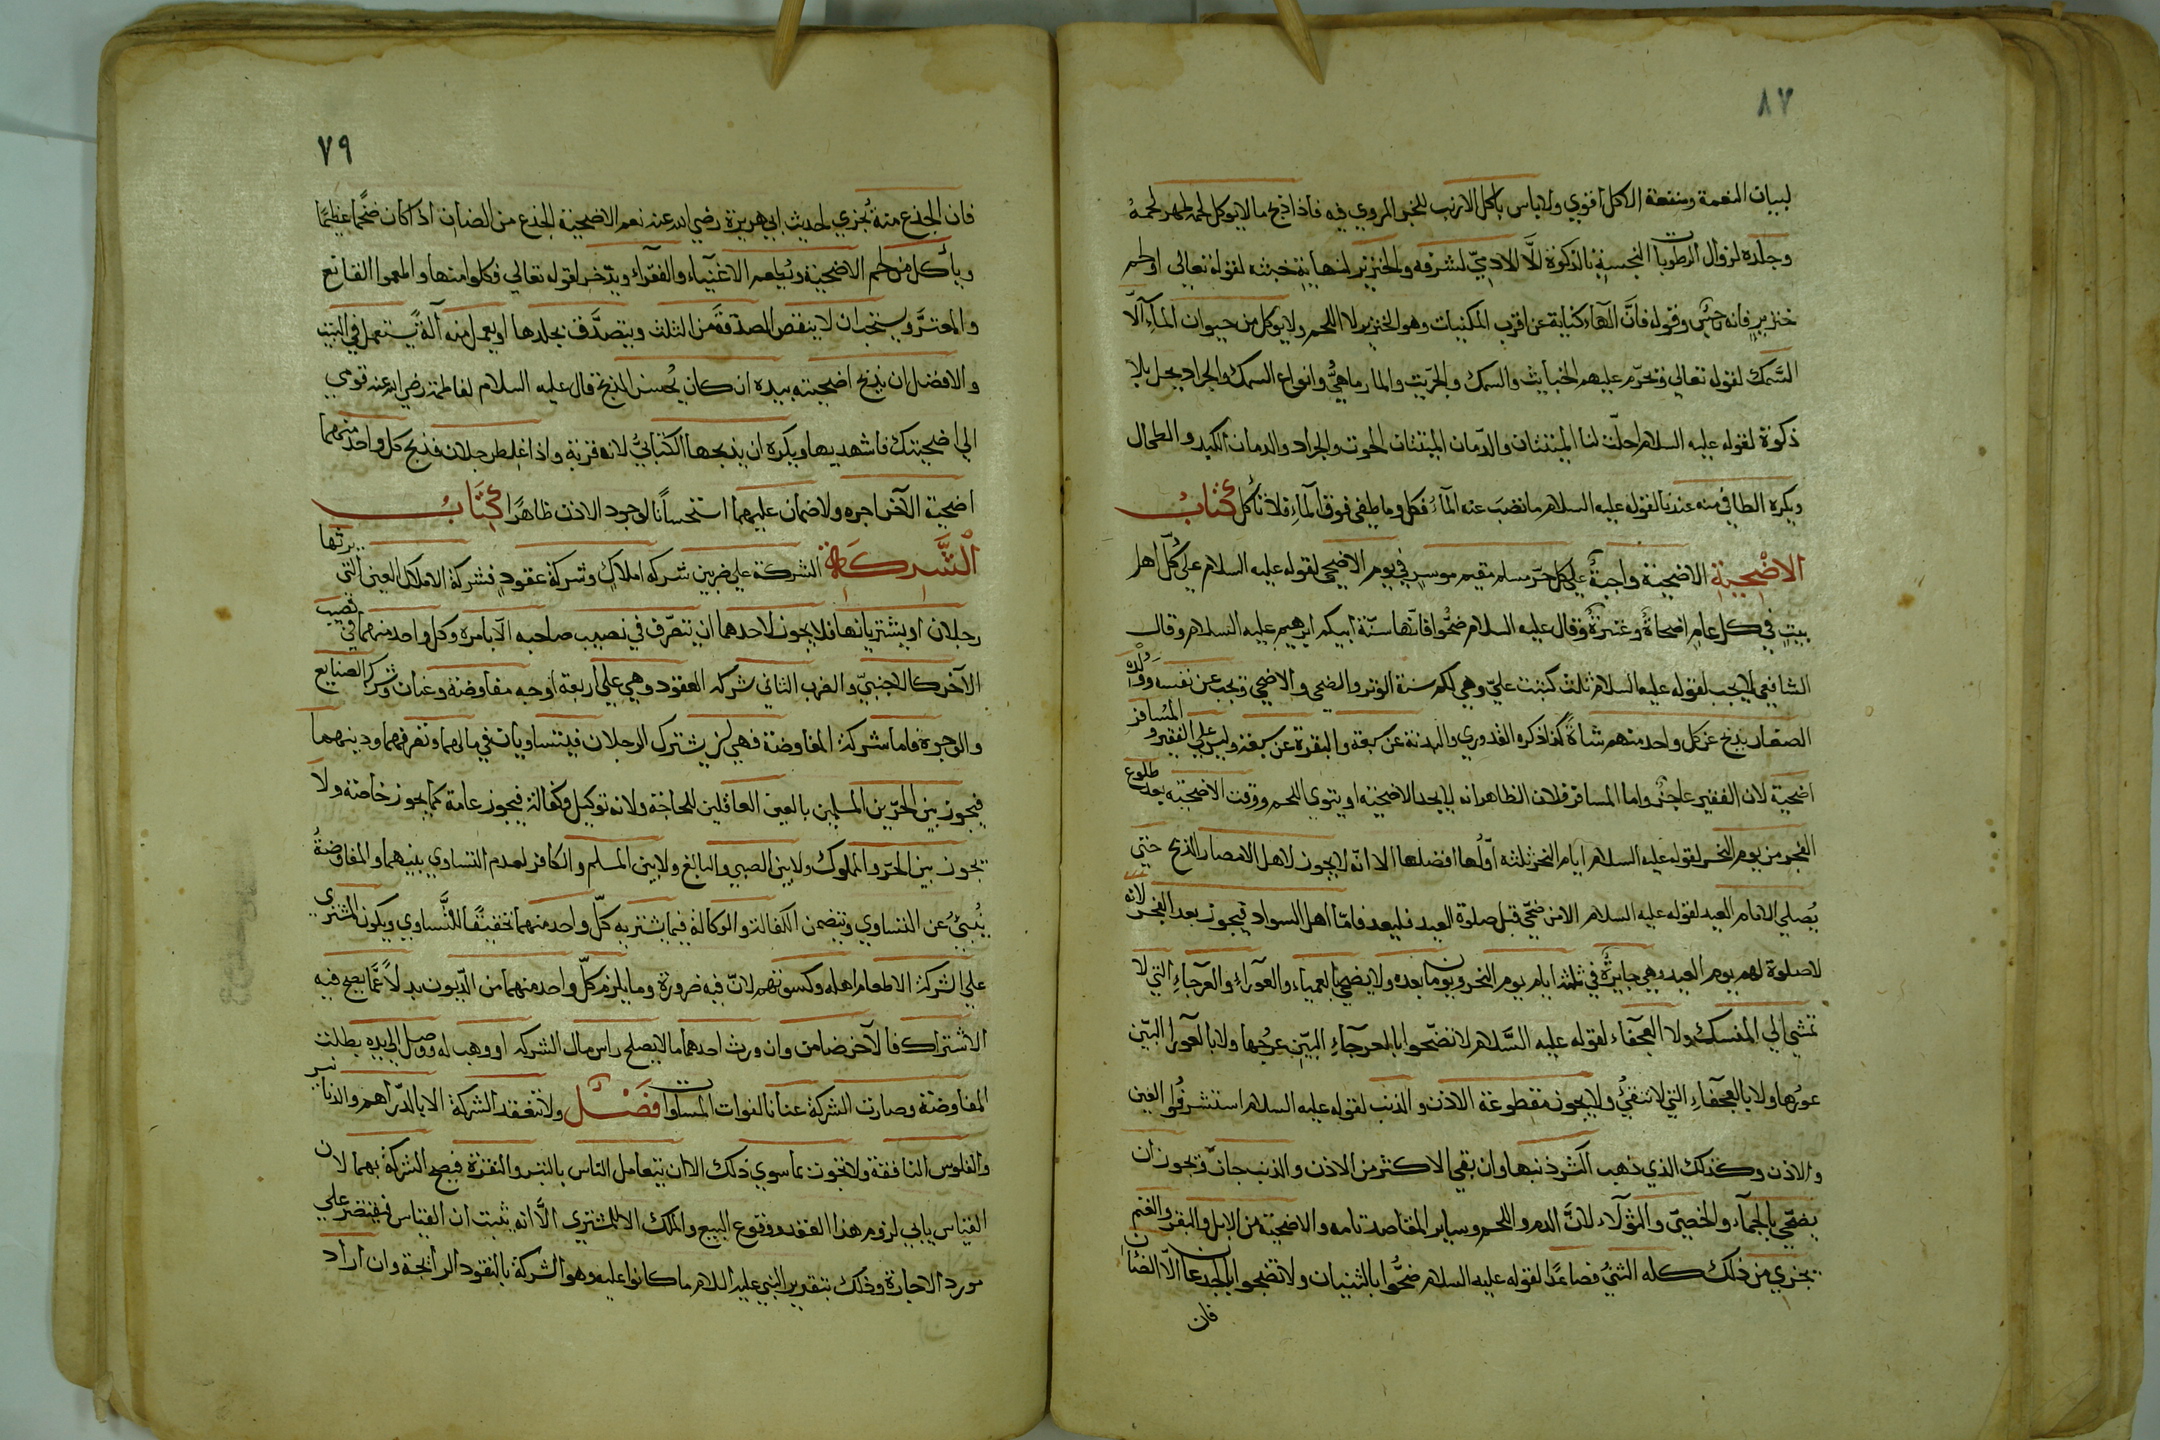 ٨٧
لبيان النعمة ومنفعة الاكل اقوي ولاباس باكل الارنب للخبر المروي فيه فاذا ذبح ما لايوكل لحمه طهر لحمه
وجلده لزوال الرطوبات النجسة بالذكوة الَّا للادميّ لشرفه والخنزير لنهاية خبثه لقوله تعالي او لحم
خنزير فانه رجس وقوله فانّ الهآء كناية عن اقرب المكنيات وهو الخنزير لا اللحم ولايوكل من حيوان المآء الّا
السّمك لقوله تعالي ويحرّم عليهم الخبايث والسمك والجرّيث والمارماهيُّ وانواع السمك والجراد يحل بلا
ذكوة لقوله عليه السلام احلّت لنا الميتتان والدّمان الميتتان الحوت والجراد والدمان الكبد والطحال
ويكره الطافي منه عندنا لقوله عليه السلام ما نضب عنه المآء فكل وما طفي فوق المآء فلا تأكل كتاب
الاضحية الاضحية واجبة علي كل حرّ مسلم مقيم موسر في يوم الاضحي لقوله عليه السلام علي كلّ اهل
بيت في كل عام اضحاة وعتيرة وقال عليه السلام ضحُّوا فانّها سنّة ابيكم ابرهيم عليه السلام وقال
الشافعي لايجب لقوله عليه السلام ثلث كتبت عليّ وهي لكم سنة الوتر والضحي والاضحي ويجب عن نفسه وولده
الصغار يذبح عن كل واحد منهم شاة كذا ذكره القدوري والبدنة عن سبعة والبقرة عن سبعة وليس علي الفقير والمسافر
اضحية لان الفقير عاجز واما المسافر فلان الظاهر انه لايجد الاضحية او يتوي اللحم ووقت الاضحية بعد طلوع
الفجر من يوم النحر لقوله عليه السلام ايام النحر ثلثه اوّلُها افضلها الا انّه لايجوز لاهل الامصار الذبح حتي
يُصلي الامام العيد لقوله عليه السلام الا من ضحّي قبل صلوة العيد فليعد فامّا اهل السواد فيجوز بعد الفجر لانه
لاصلوة لهم يوم العيد وهي جايزةٌ في ثلثة ايام يوم النحر ويومان بعده ولايضحي بالعمياء والعوراء والعرجاء التي لا
تمشي الي المنسك ولا العجفاء لقوله عليه السَّلام لاتضحّوا بالعرجآء البيّن عرجُها ولابالعورا البيّن
عورُها ولابالعجفاء التي لاتنقي ولايجوز مقطوعة الاذن والذنب لقوله عليه السلام استشرفُوا العين
والاذن وكذلك الذي ذهب اكثر ذنبها وان بقي الاكثر من الاذن والذنب جاز ويجوز ان
يضحّي بالجمآء والخصيّ والثولاء لانَّ الدم واللحم وساير المقاصد تامه والاضحيّة من الابل والبقر والغنم
يجزي من ذلك كله الثنيُّ فصاعدًا لقوله عليه السلام ضحُّوا بالثنيان ولاتضحوا بالجذعان الّا الضان
فان
٧٩
فان الجذع منه يُجزي لحديث ابي هريرة رضي الله عنه نعم الاضحية الجذع من الضان اذا كان ضخمًا عظيمًا
ويأكل من لحم الاضحية ويُطعم الاغنياء والفقرآء ويدّخر لقوله تعالي فكلوا منها واطعموا القانع
والمعترَّ ويستحب ان لاينقص الصدقة من الثلث ويتصدَّق بجلدها او يعمل منه آلةً يستعمل في البيت
والافضل ان يذبح اضحيته بيده ان كان يُحسن الذبح قال عليه السلام لفاطمة رضي الله عنه قومي
الي اضحيتك فاشهديها ويكره ان يذبحها الكتابيُّ لانه قربة واذا غلط رجلان فذبح كل واحد منهما
اضحية الآخر اجره ولا ضمان عليهما استحسانًا لوجود الاذن ظاهرًا كتَاب
الشَّركَة الشركة علي ضربين شركه املاكٍ وشركة عقودٍ فشركة الاملاك العين التي يرثها
رجلان او يشتريانها فلايجوز لاحدهما ان يتصّرف في نصيب صاحبه الّا بامره وكل واحد منهما في نصيب
الآخر كالاجنبيّ والضرب الثاني شركه العقود وهي علي اربعة اوجه مفاوضة وعنان وشركة الصنايع
والوجوه فاما شركة المفاوضة فهي ان يشترك الرجلان فيتساويان في مالهما وتصرفهما ودينهما
فيجوز بين الحرّين المسلمين بالغين العاقلين للحاجة ولانه توكيل وكفالة فيجوز عامة كما يجوز خاصة ولا
يجوز بين الحرّ والمملوك ولابين الصبي والبالغ ولابين المسلم والكافر لعدم التساوي بينهما والمفاوضةُ
يُنبيُ عن التساوي ويتضمن الكفالة والوكالة فيما يشتريه كلّ واحد منهما تحقيقًا للتَّساوي ويكون المشتري
علي الشركة الا طعام اهله وكسوتهم لانّ فيه ضرورة وما يلزم كلّ واحد منهما من الدّيون بدلًا عمَّا يصح فيه
الاشتراك فالآخر ضامن وان ورث احدهما ما لايصلح راس مال الشركه او وهب له ووصل الي يده بطلت
المفاوضة وصارت الشركة عنانا لفوات المساوات فصْل ولاتنعقد الشركة الا بالدّراهم والدنانير
والفلوس النافقة ولاتجوز بما سوي ذلك الا ان يتعامل الناس بالتبر والنقرة فيصح الشركة بهما لان
القياس يابي لزوم هذا العقد ووقوع البيع والملك الا للمشتري الَّا انه يثبت ان القياس فيقتصر علي
مورد الاجازة وذلك بتقرير النبي عليه السلام ما كانوا عليه وهو الشركة بالنقود الرائجة وان اراد